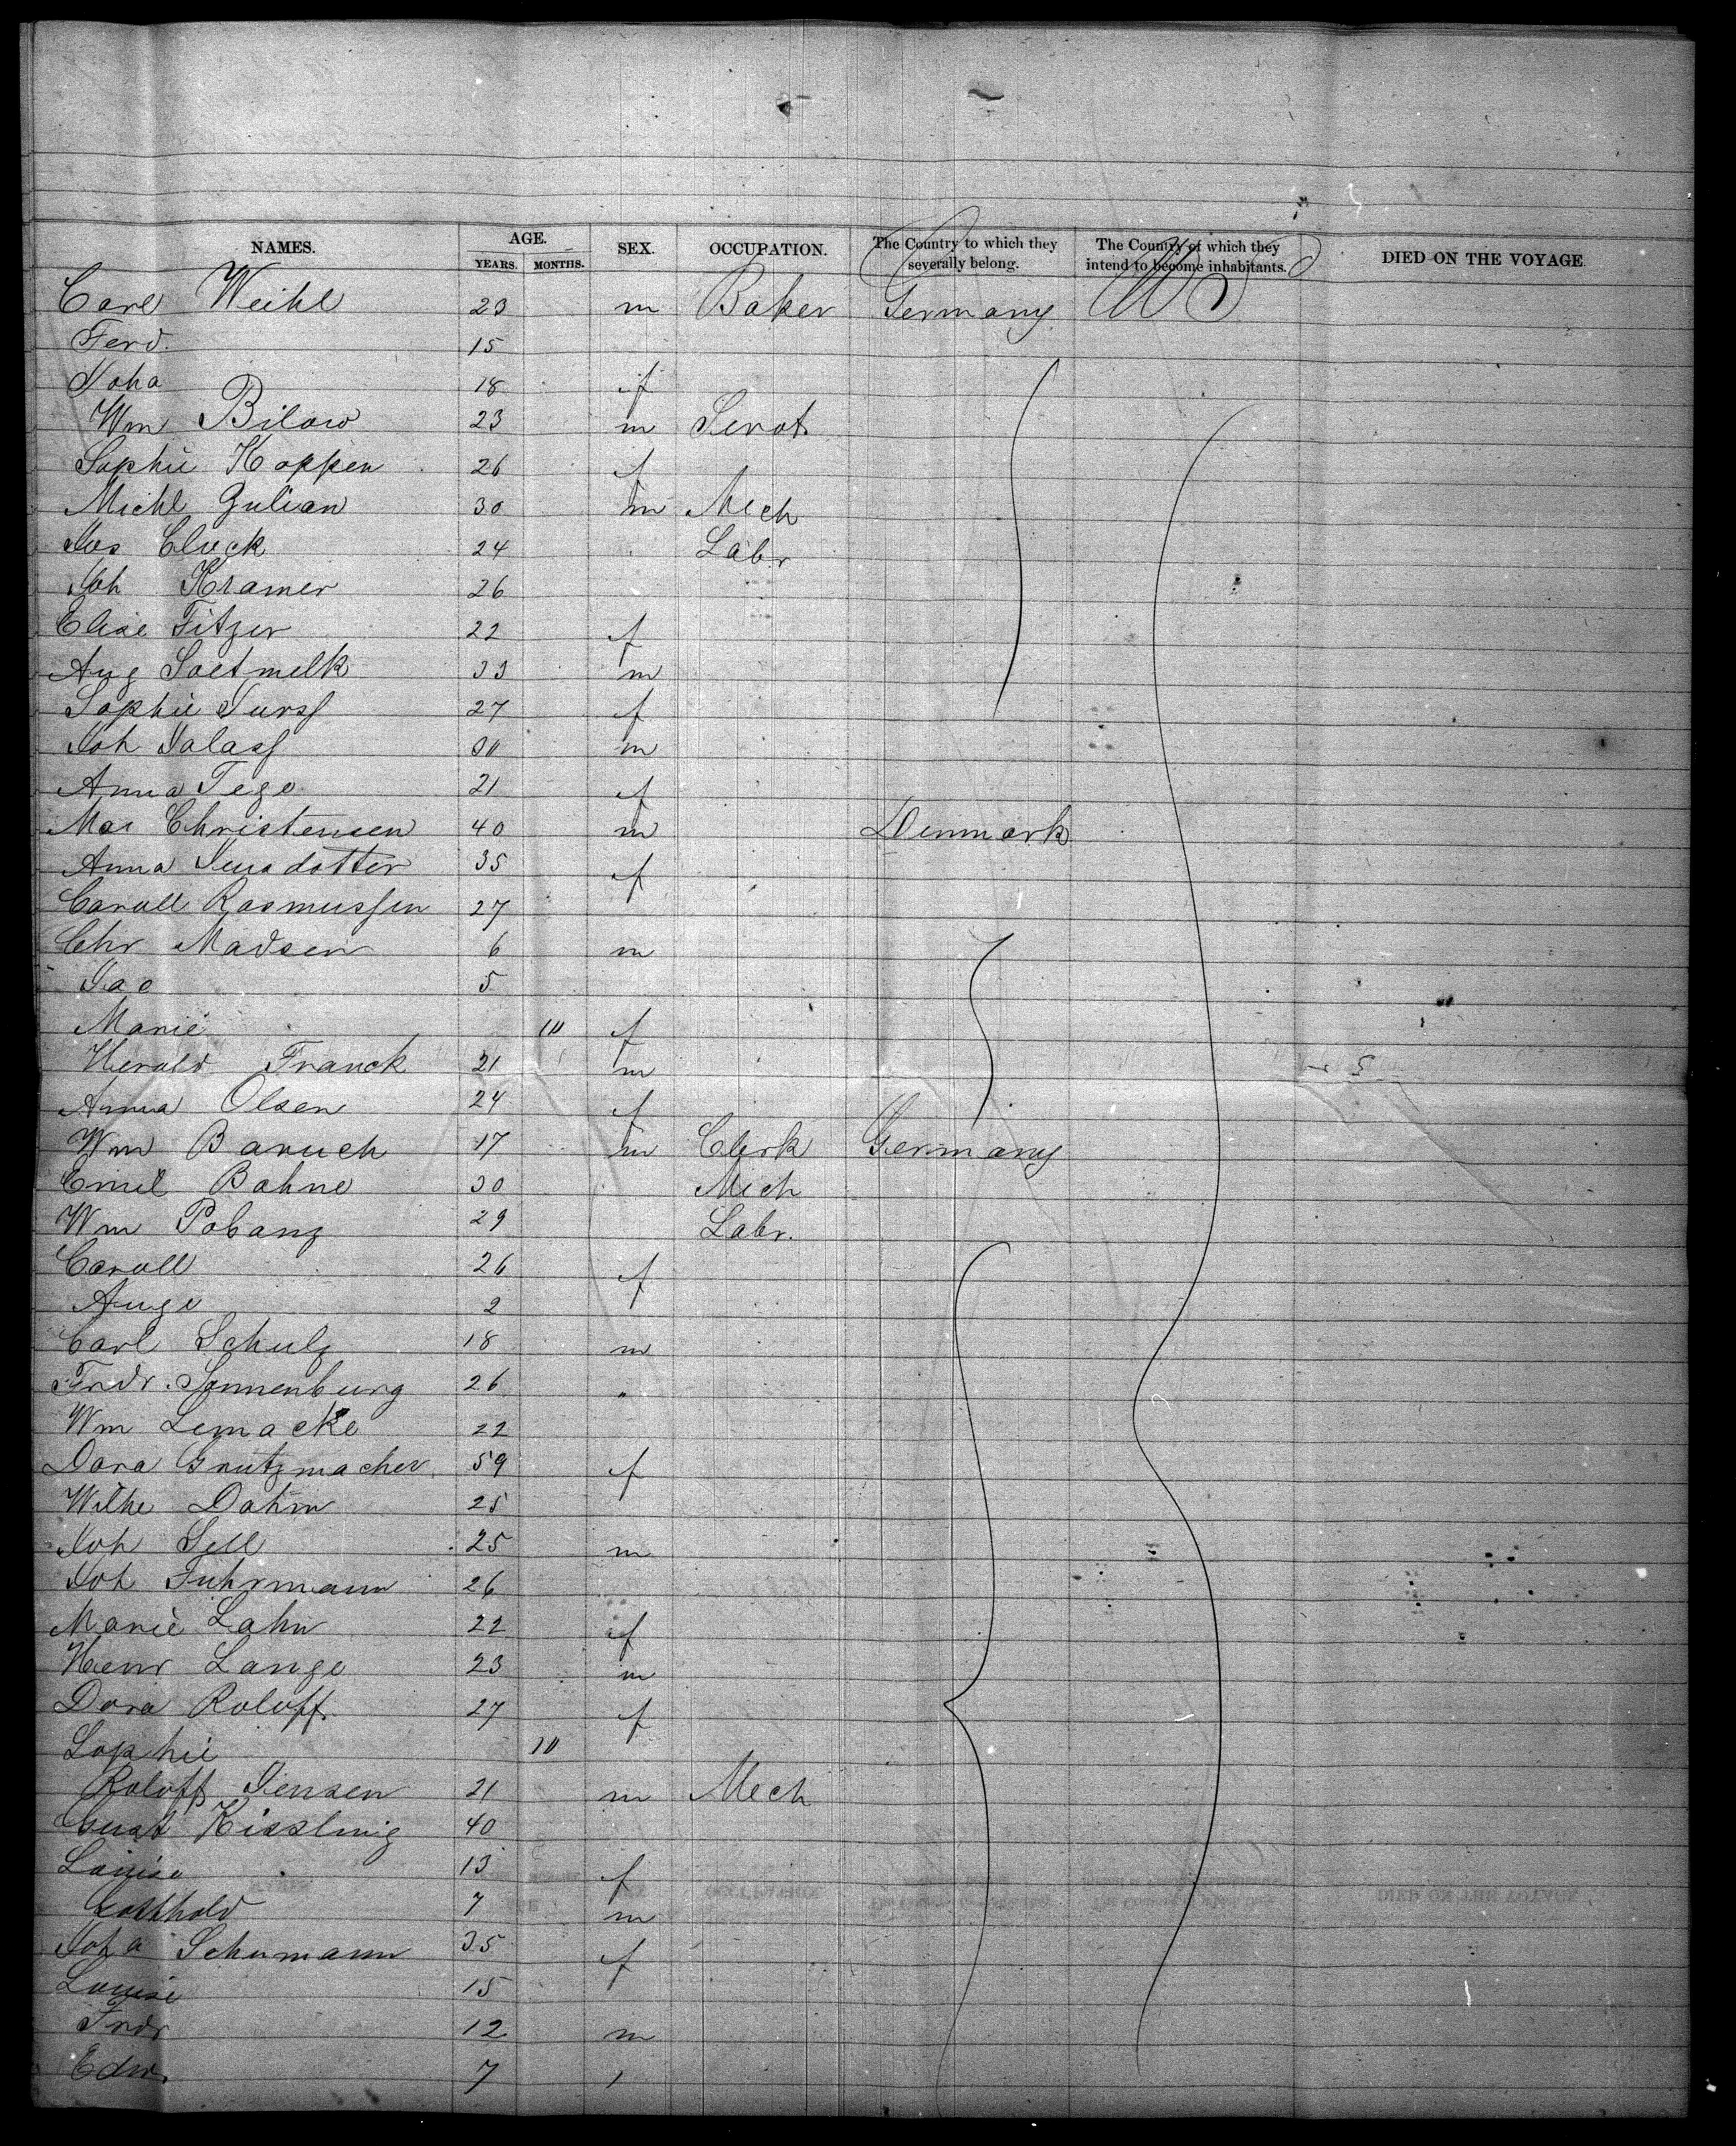 NAMES. AGE. SEX. OCCUPATION. The Country to which they severally belong. The Country of which they intend to become inhabitants. DIED ON THE VOYAGE
YEARS. MONTHS.
Carl Weihl 23 m Baker Germany US
Ferd. 15
Joha 18 f
Wm Bilow 23 m Servt
Sophie Koppen 26 f
Michl Gulian 30 m Mech
Jos Cluck 24 Labr
Joh Kramer 26
Elise Fitzer 22 f
Aug Soetmelk 33 m
Sophie 27 f
Joh 30 m
Anna Tege 21 f
Christensen 40 m Denmark
Anna Jensdotter 35 f
Caroll Rasmussen 27
Chr Madsen 6 m
Jac 5
Marie 10 f
Herald Franck 21 m
Anna Olsen 24 f
Wm Baruch 17 m Clerk Germany
Emil Bohne 30 Mech
Wm Pobanz 29 Labr.
Caroll 26 f
Auge 2
Carl Schulz 18 m
Frdr. Sonnenburg 26 "
Wm Lemacke 22
Dora Grutzmacher 59 f
Wilhe Dahm 25
Joh Sell 25 m
Joh Fuhrmann 26
Marie Lahn 22 f
Henr Lange 23 m
Dora Roloff 27 f
Sophie 10
Roloff Jensen 21 m Mech
Gust Kissling 40
Louise 13 f
Gotthold 7 m
Joha Schumann 35 f
Louise 15
Frdr 12 m
Edw. 7